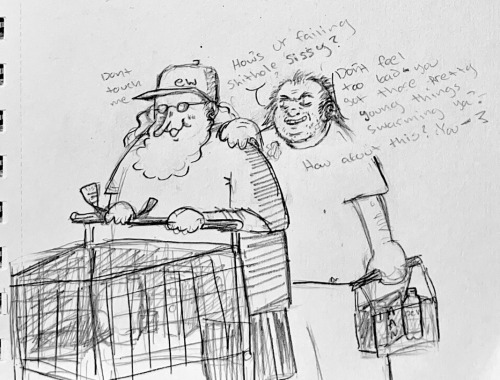 Dont
touch
me
ew
How's ur failing
shithole sissy?
Don't feel
too bad you
got those pretty
young things
swarming ya?
How about this? You—